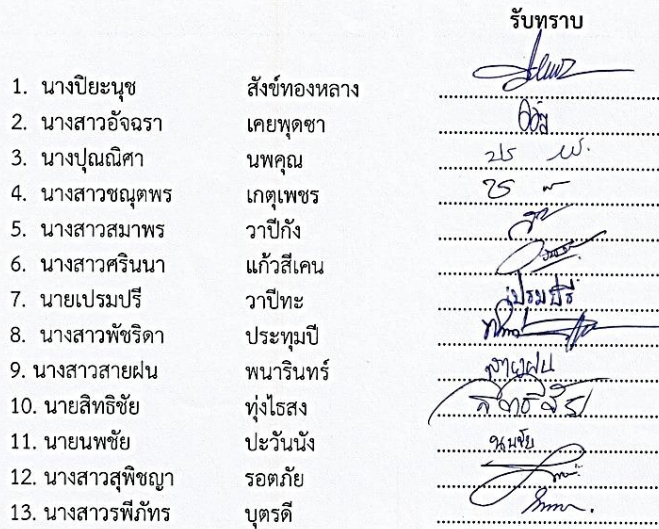 รับทราบ
1. นางปิยะนุช สังข์ทองหลาง
2. นางสาวอัจฉรา เคยพุดซา
3. นางปุณณิศา นพคุณ
4. นางสาวชณุตพร เกตุเพชร
5. นางสาวสมาพร วาปีกัง
6. นางสาวศรินนา แก้วสีเคน
7. นายเปรมปรี วาปีทะ เปรมปรี
8. นางสาวพัชริดา ประทุมปี
9. นางสาวสายฝน พนารินทร์ สายฝน
10. นายสิทธิชัย ทุ่งไธสง
11. นายนพชัย ปะวันนัง นพชัย
12. นางสาวสุพิชญา รอตภัย
13. นางสาวรพีภัทร บุตรดี